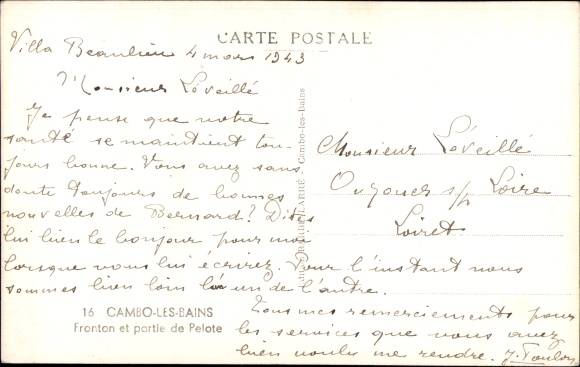 CARTE POSTALE
Villa Beaulieu 4 mars 1943
Monsieur Léveillé
Je pense que votre
santé se maintient tou-
jours bonne. Vous avez sans
doute toujours de bonnes
nouvelles de Bernard? Dites
lui bien le bonjour pour moi
lorsque vous lui écrirez. Pour l'instant nous
sommes bien loin l'un de l'autre.
Tous mes remerciements pour
les services que vous avez
bien voulu me rendre. J. Toulon
Monsieur Léveillé
Ouzouer s/ Loire
Loiret
LARRE, Cambo-les-Bains
16 CAMBO-LES-BAINS
Fronton et partie de Pelote